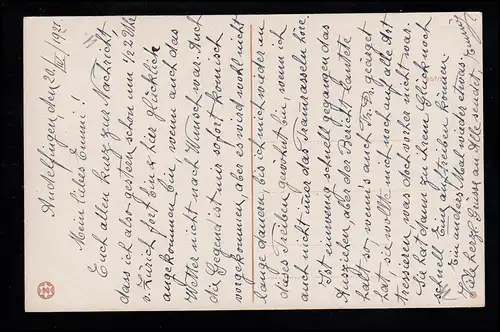 Andelfingen, den 20. III. 1921.
Mein liebes Emmi!
Euch allen kurz zur Nachricht
dass ich also gestern schon um ½ 2 Uhr
v. Zürich fort bin & hier glücklich
angekommen bin, wenn auch das
Wetter nicht nach Wunsch war. Auch
die Gegend ist mir sofort komisch
vorgekommen, aber es wird wohl nicht
lange dauern, bis ich mich wieder an
dieses Treiben gewohnt bin, wenn ich
auch nicht mer das Tramrasseln höre.
Ist ein wenig schnell gegangen das
Ausziehen, aber der Bericht lautete
halt so wenn's auch Fr. Dr. geärgert
hat, sie wollte mich noch auf alle Art
tressieren, was doch vorher nicht war.
Sie hat dann zu ihrem Glück noch
schnell Eine auftreiben können
Ein anders Mal wieder etwas.
Viele herzl. Grüsse an Alle sendet